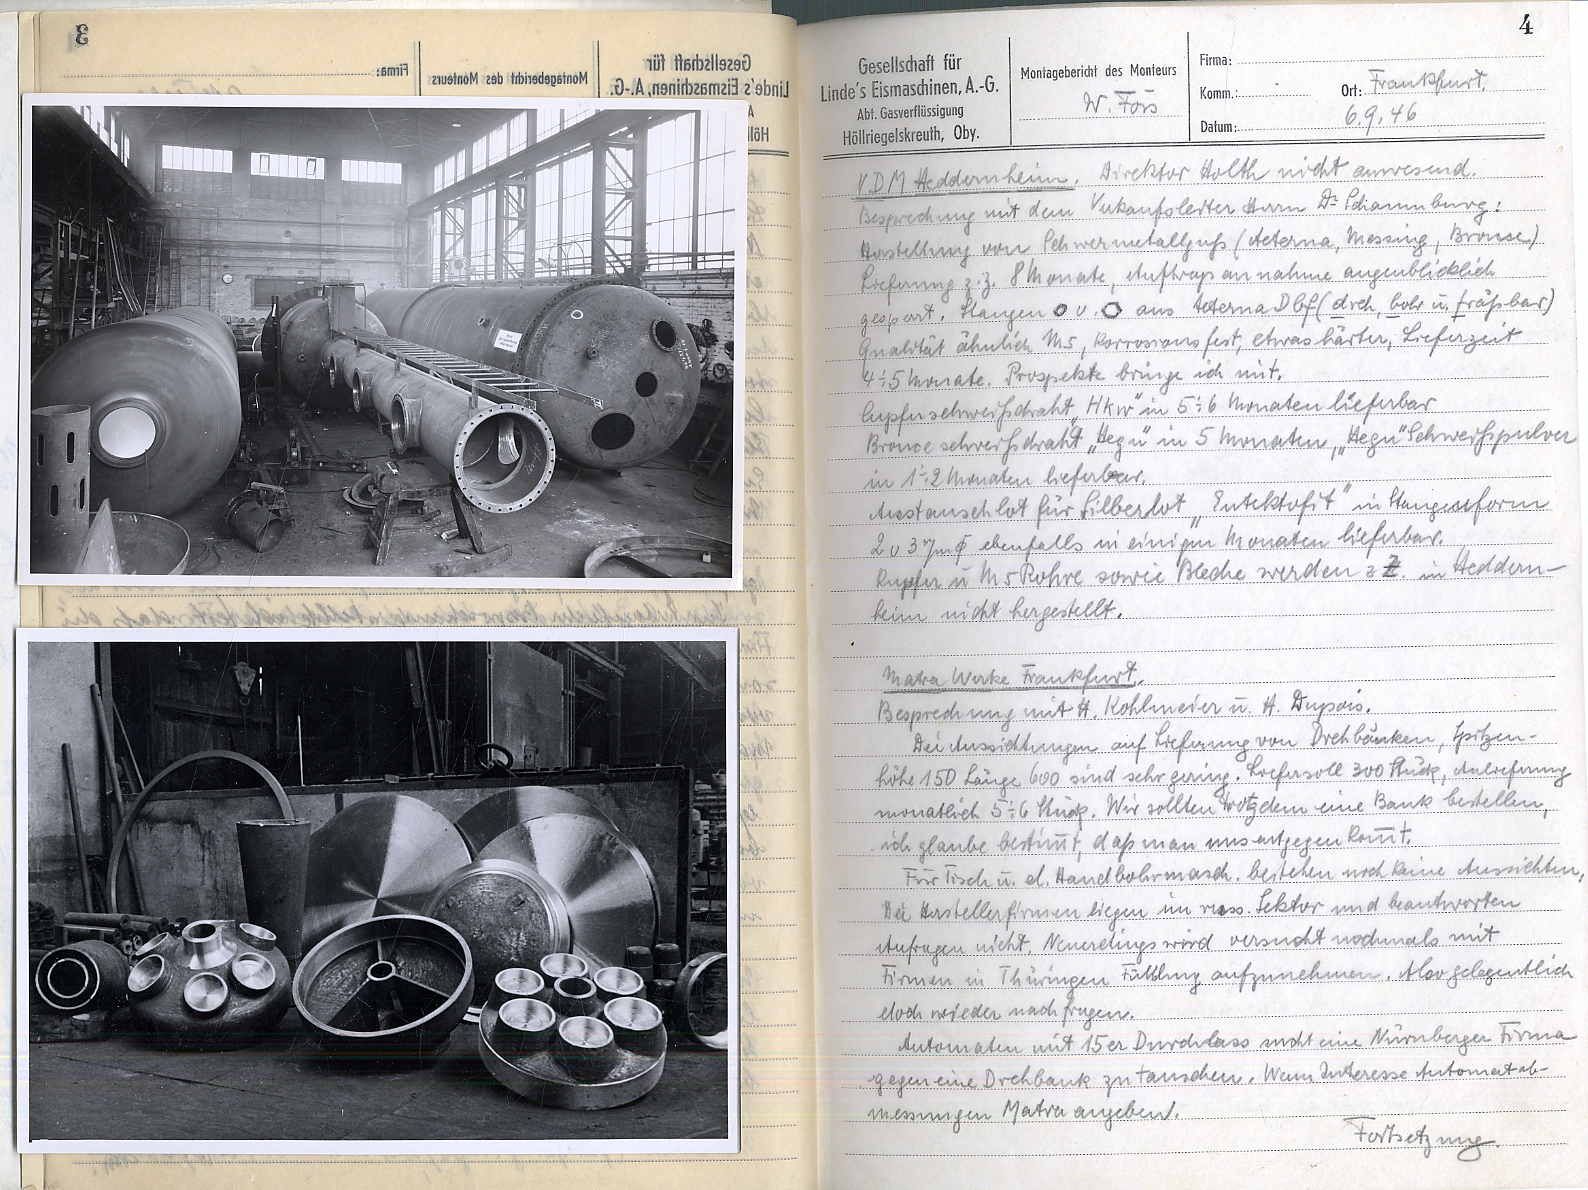 3
Firma:
Montagebericht des Monteurs
Gesellschaft für
Linde's Eismaschinen, A.-G.
4
Gesellschaft für
Linde's Eismaschinen, A.-G.
Abt. Gasverflüssigung
Höllriegelskreuth, Oby.
Montagebericht des Monteurs
W. Fois
Firma:
Komm.:
Ort: Frankfurt.
Datum: 6.9.46
V.D.M Heddernheim. Direktor Holth nicht anwesend.
Besprechung mit dem Verkaufsleiter Herrn Dr Schaumburg:
Herstellung von Schwermetallguß (Aeterna, Messing, Bronce)
Lieferung z.Z. 8 Monate, Auftragsannahme augenblicklich
gesperrt. Stangen O u. O aus Aeterna Dbf (dreh, bohr u. fräßbar)
Qualität ähnlich Ms, korrosionsfest, etwas härter, Lieferzeit
4÷5 Monate. Prospekte bringe ich mit.
Kupferschweißdraht „Hkw" in 5÷6 Monaten lieferbar
Bronceschweißdraht „Hegu" in 5 Monaten, „Hegu" Schweißpulver
in 1÷2 Monaten lieferbar.
Austauschlot für Silberlot „Eutektofit" in Stangenform
2 u 3 ebenfalls in einigen Monaten lieferbar.
Kupfer u Ms Rohre sowie Bleche werden z Z. in Heddern-
heim nicht hergestellt.
Matra Werke Frankfurt.
Besprechung mit H. Kohlmeier u. H. Dupois.
Die Aussichtungen auf Lieferung von Drehbänken, Spitzen-
höhe 150 Länge 600 sind sehr gering. Liefersoll 300 Stück, Anlieferung
monatlich 5÷6 Stück. Wir sollten trotzdem eine Bank bestellen,
ich glaube bestim̅t, daß man uns entgegen kom̅t.
Für Tisch u. el. Handbohrmasch. bestehen noch keine Aussichten,
Die Herstellerfirmen liegen im russ. Sektor und beantworten
Anfragen nicht. Neuerdings wird versucht nochmals mit
Firmen in Thüringen Fühlung aufzunehmen. Also gelegentlich
doch wieder nachfragen.
Automaten mit 15er Durchlass sucht eine Nürnberger Firma
gegen eine Drehbank zu tauschen. Wenn Interesse Automatab-
messungen Matra angeben.
Fortsetzung.